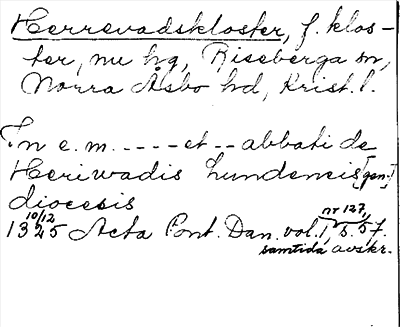 Herrevadskloster, f. klos-
ter, nu hg, Riseberga sn,
Norra Åsbo hd, Krist. l.
In e. m. ----- et -- abbati de
Heriwadis Lundensis [gen.]
diocesis
10/12 nr 127,
1325 Acta Pont. Dan. vol. 1, s. 57.
samtida avskr.